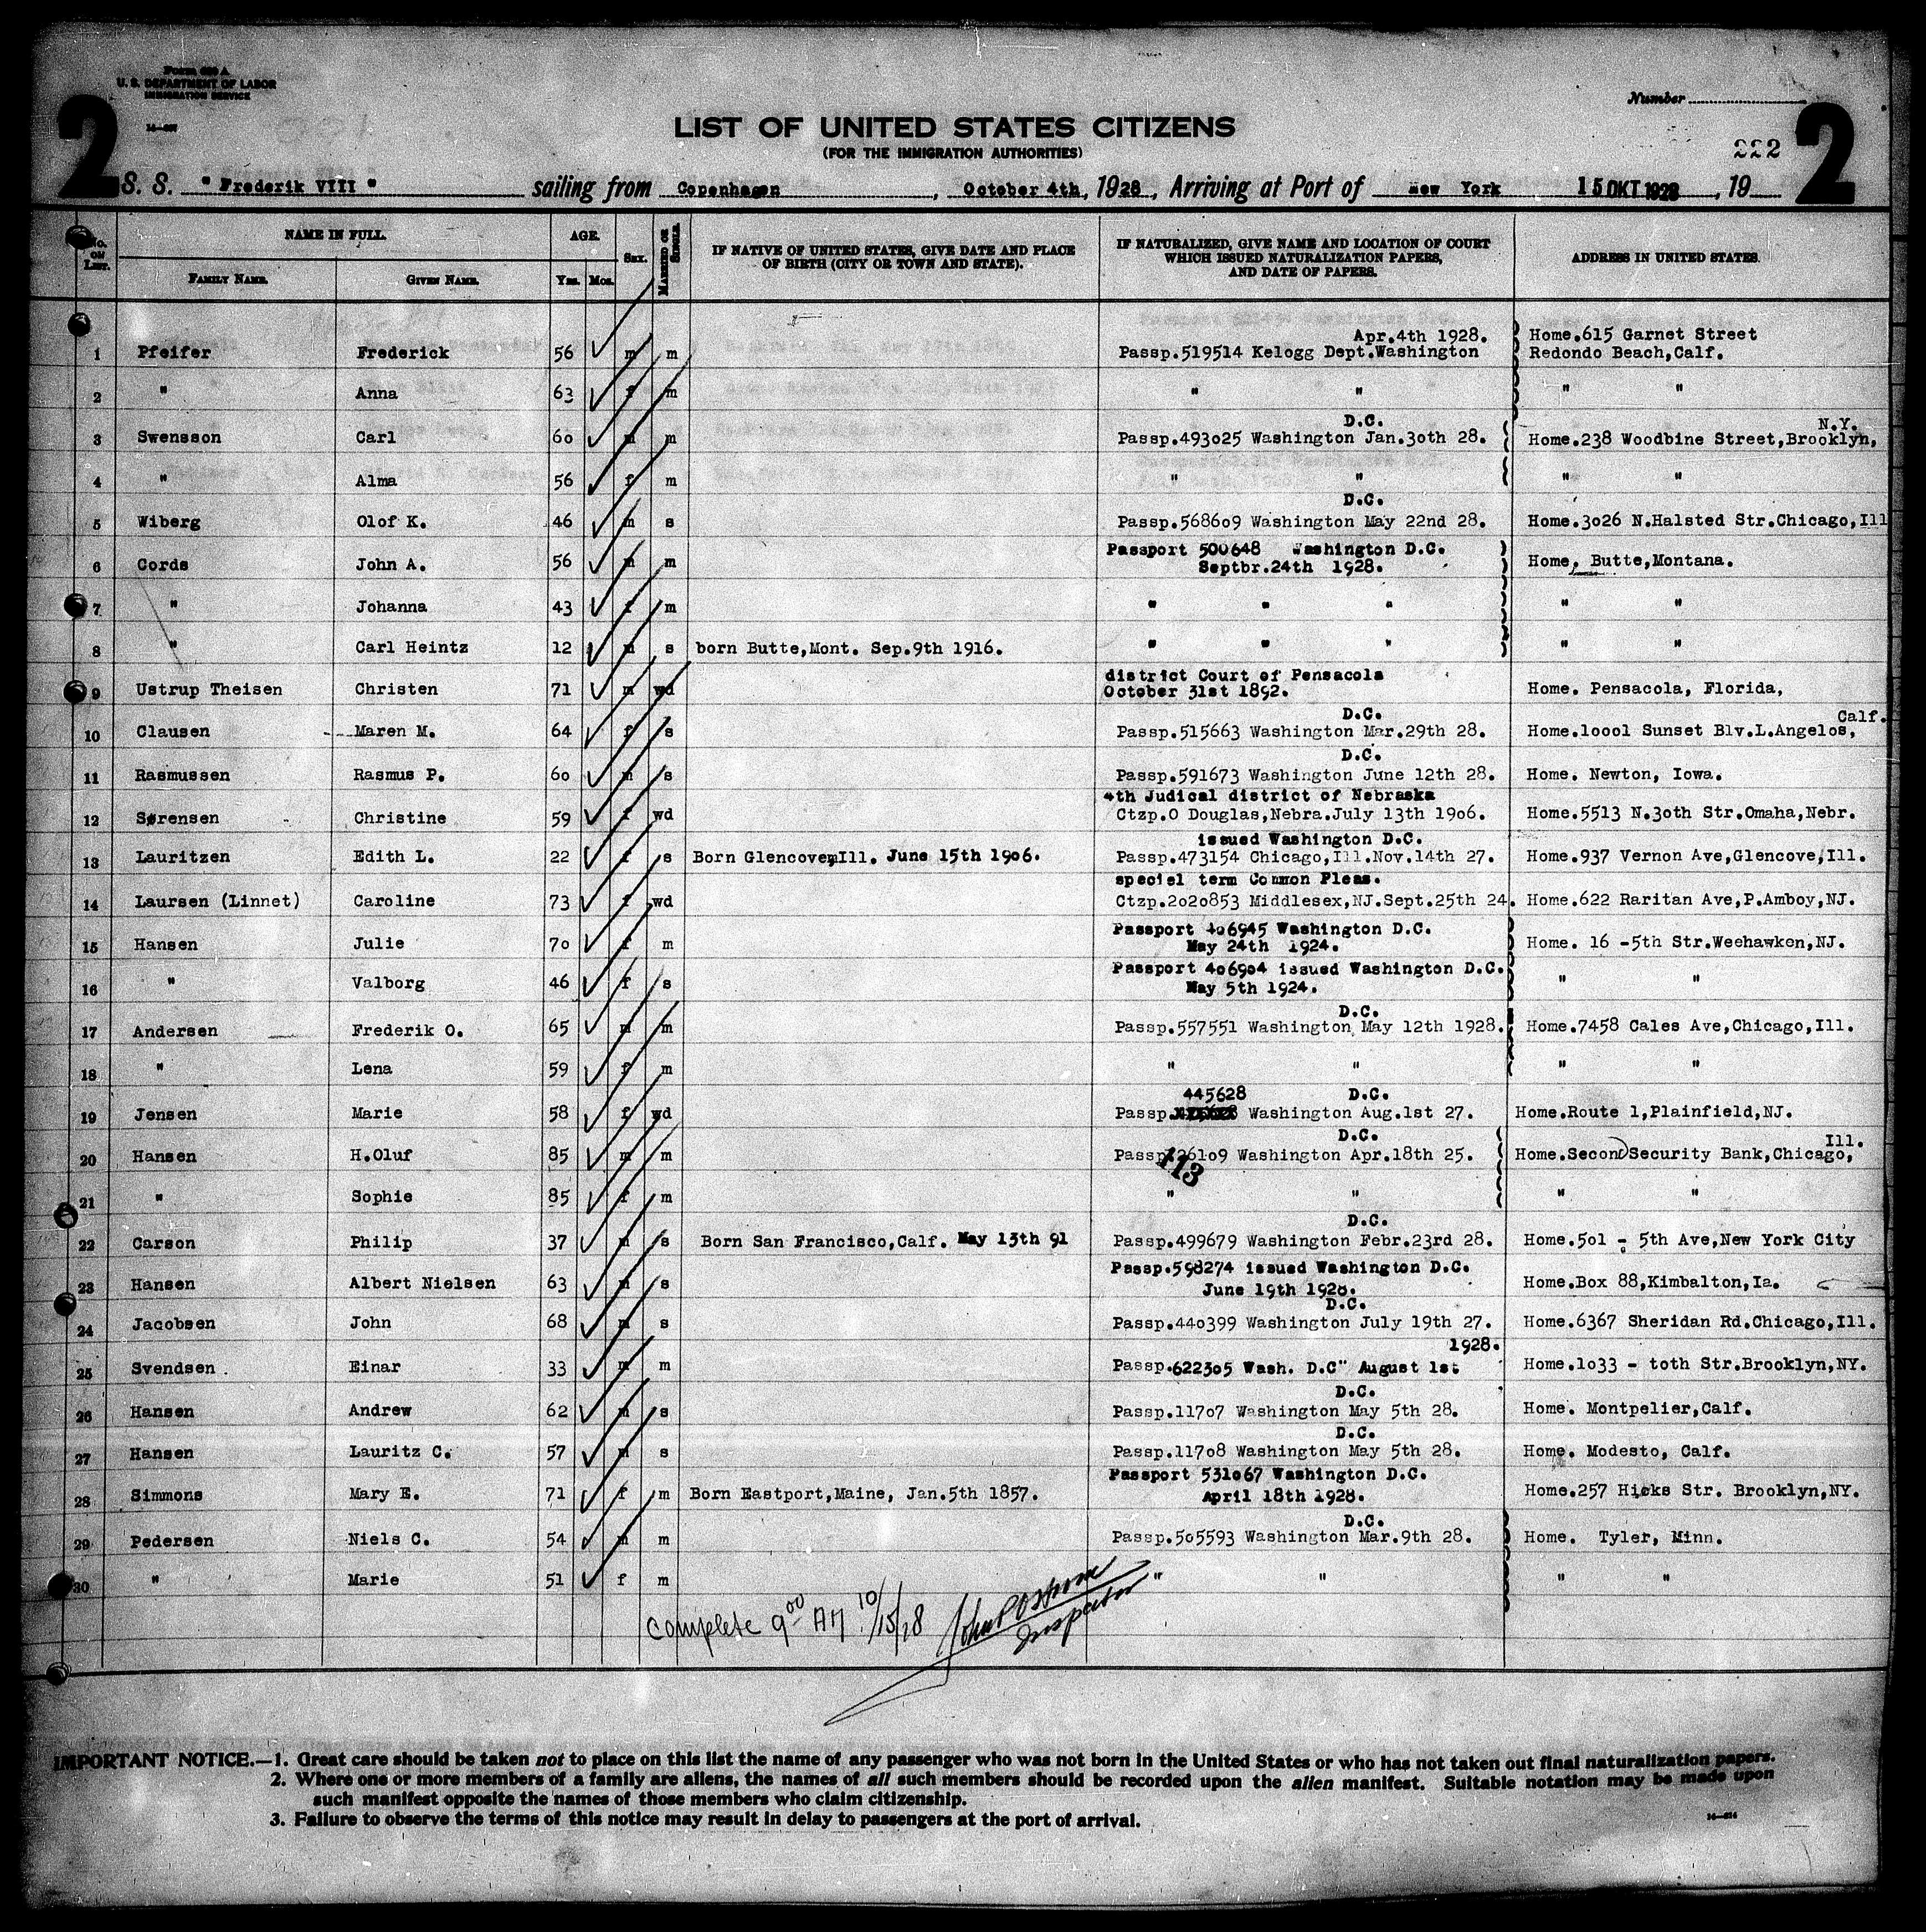 Form 630 A
U. S. DEPARTMENT OF LABOR
IMMIGRATION SERVICE
Number
2
LIST OF UNITED STATES CITIZENS
(FOR THE IMMIGRATION AUTHORITIES)
222
2
S. S. "Frederik VIII" sailing from Copenhagen, October 4th, 1928, Arriving at Port of New York 15 OKT 1928, 19
No. on List. NAME IN FULL. AGE. Sex. Married or Single. IF NATIVE OF UNITED STATES, GIVE DATE AND PLACE OF BIRTH (CITY OR TOWN AND STATE). IF NATURALIZED, GIVE NAME AND LOCATION OF COURT WHICH ISSUED NATURALIZATION PAPERS, AND DATE OF PAPERS. ADDRESS IN UNITED STATES.
Family Name. Given Name. Yrs. Mos.
Apr.4th 1928. Home.615 Garnet Street
1 Pfeifer Frederick 56 m m Passp.519514 Kelogg Dept.Washington Redondo Beach,Calf.
2 " Anna 63 f m " " " "
D.C. N.Y.
3 Swensson Carl 60 m m Passp.493025 Washington Jan.30th 28. Home.238 Woodbine Street,Brooklyn,
4 " Alma 56 f m " " " "
D.C.
5 Wiberg Olof K. 46 m s Passp.568609 Washington May 22nd 28. Home.3026 N.Halsted Str.Chicago,Ill
Passport 500648 Washington D.C.
6 Cords John A. 56 m m Septbr.24th 1928. Home, Butte,Montana.
7 " Johanna 43 f m " " " " "
8 " Carl Heintz 12 m s born Butte,Mont. Sep.9th 1916. " " " " "
district Court of Pensacola
9 Ustrup Theisen Christen 71 m wd October 31st 1892. Home. Pensacola, Florida,
D.C. Calf.
10 Clausen Maren M. 64 f s Passp.515663 Washington Mar.29th 28. Home.10001 Sunset Blv.L.Angelos,
D.C.
11 Rasmussen Rasmus P. 60 m s Passp.591673 Washington June 12th 28. Home. Newton, Iowa.
4th Judical district of Nebraska
12 Sørensen Christine 59 f wd Ctzp.O Douglas,Nebra.July 13th 1906. Home.5513 N.30th Str.Omaha,Nebr.
issued Washington D.C.
13 Lauritzen Edith L. 22 f s Born Glencove,Ill. June 15th 1906. Passp.473154 Chicago,Ill.Nov.14th 27. Home.937 Vernon Ave,Glencove,Ill.
speciel term Common Pleas.
14 Laursen (Linnet) Caroline 73 f wd Ctzp.2020853 Middlesex,NJ.Sept.25th 24. Home.622 Raritan Ave,P.Amboy,NJ.
Passport 406945 Washington D.C.
15 Hansen Julie 70 f m May 24th 1924. Home. 16 -5th Str.Weehawken,NJ.
Passport 406904 issued Washington D.C.
16 " Valborg 46 f s May 5th 1924. " "
D.C.
17 Andersen Frederik O. 65 m m Passp.557551 Washington May 12th 1928. Home.7458 Cales Ave,Chicago,Ill.
18 " Lena 59 f m " " " "
445628 D.C.
19 Jensen Marie 58 f wd Passp. Washington Aug.1st 27. Home.Route 1,Plainfield,NJ.
D.C. Ill.
20 Hansen H.Oluf 85 m m Passp.26109 Washington Apr.18th 25. Home.Second Security Bank,Chicago,
113
21 " Sophie 85 f m " " " "
D.C.
22 Carson Philip 37 m s Born San Francisco,Calf. May 13th 91 Passp.499679 Washington Febr.23rd 28. Home.501 - 5th Ave,New York City
Passp.598274 issued Washington D.C.
23 Hansen Albert Nielsen 63 m s June 19th 1928. Home.Box 88,Kimbalton,Ia.
D.C.
24 Jacobsen John 68 m s Passp.440399 Washington July 19th 27. Home.6367 Sheridan Rd.Chicago,Ill.
1928.
25 Svendsen Einar 33 m m Passp.622305 Wash. D.C" August 1st Home.1033 - toth Str.Brooklyn,NY.
D.C.
26 Hansen Andrew 62 m s Passp.11707 Washington May 5th 28. Home. Montpelier,Calf.
D.C.
27 Hansen Lauritz C. 57 m s Passp.11708 Washington May 5th 28. Home. Modesto, Calf.
Passport 531067 Washington D.C.
28 Simmons Mary E. 71 f m Born Eastport,Maine, Jan.5th 1857. April 18th 1928. Home.257 Hicks Str. Brooklyn,NY.
D.C.
29 Pedersen Niels C. 54 m m Passp.505593 Washington Mar.9th 28. Home. Tyler, Minn.
30 " Marie 51 f m " " " "
Complete 9 00 AM 10/15/28 Inspector
IMPORTANT NOTICE.—1. Great care should be taken not to place on this list the name of any passenger who was not born in the United States or who has not taken out final naturalization papers.
2. Where one or more members of a family are aliens, the names of all such members should be recorded upon the alien manifest. Suitable notation may be made upon
such manifest opposite the names of those members who claim citizenship.
3. Failure to observe the terms of this notice may result in delay to passengers at the port of arrival.